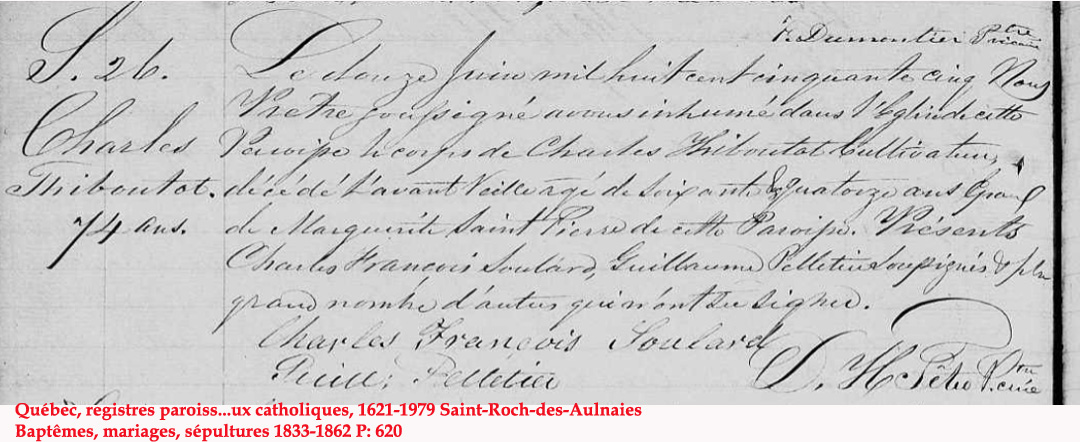 Frs Dumontier Ptre Vicaire
S. 26.
Charles
Thiboutot.
74 ans.
Le douze Juin mil huit cent cinquante cinq Nous
Prêtre soussigné avons inhumé dans l'Eglise de cette
Paroisse le corps de Charles Thiboutot Cultivateur,
décédé l'avant veille agé de soixante & quatorze ans Epoux
de Marguerite Saint Pierre de cette Paroisse. Présents
Charles François Soulard, Guillaume Pelletier soussignés & plus
grand nombre d'autres qui n'ont su signer.
Charles François Soulard
Guill: Pelletier
D. H. Têtu Ptre Curé
Québec, registres paroiss...ux catholiques, 1621-1979 Saint-Roch-des-Aulnaies
Baptêmes, mariages, sépultures 1833-1862 P: 620